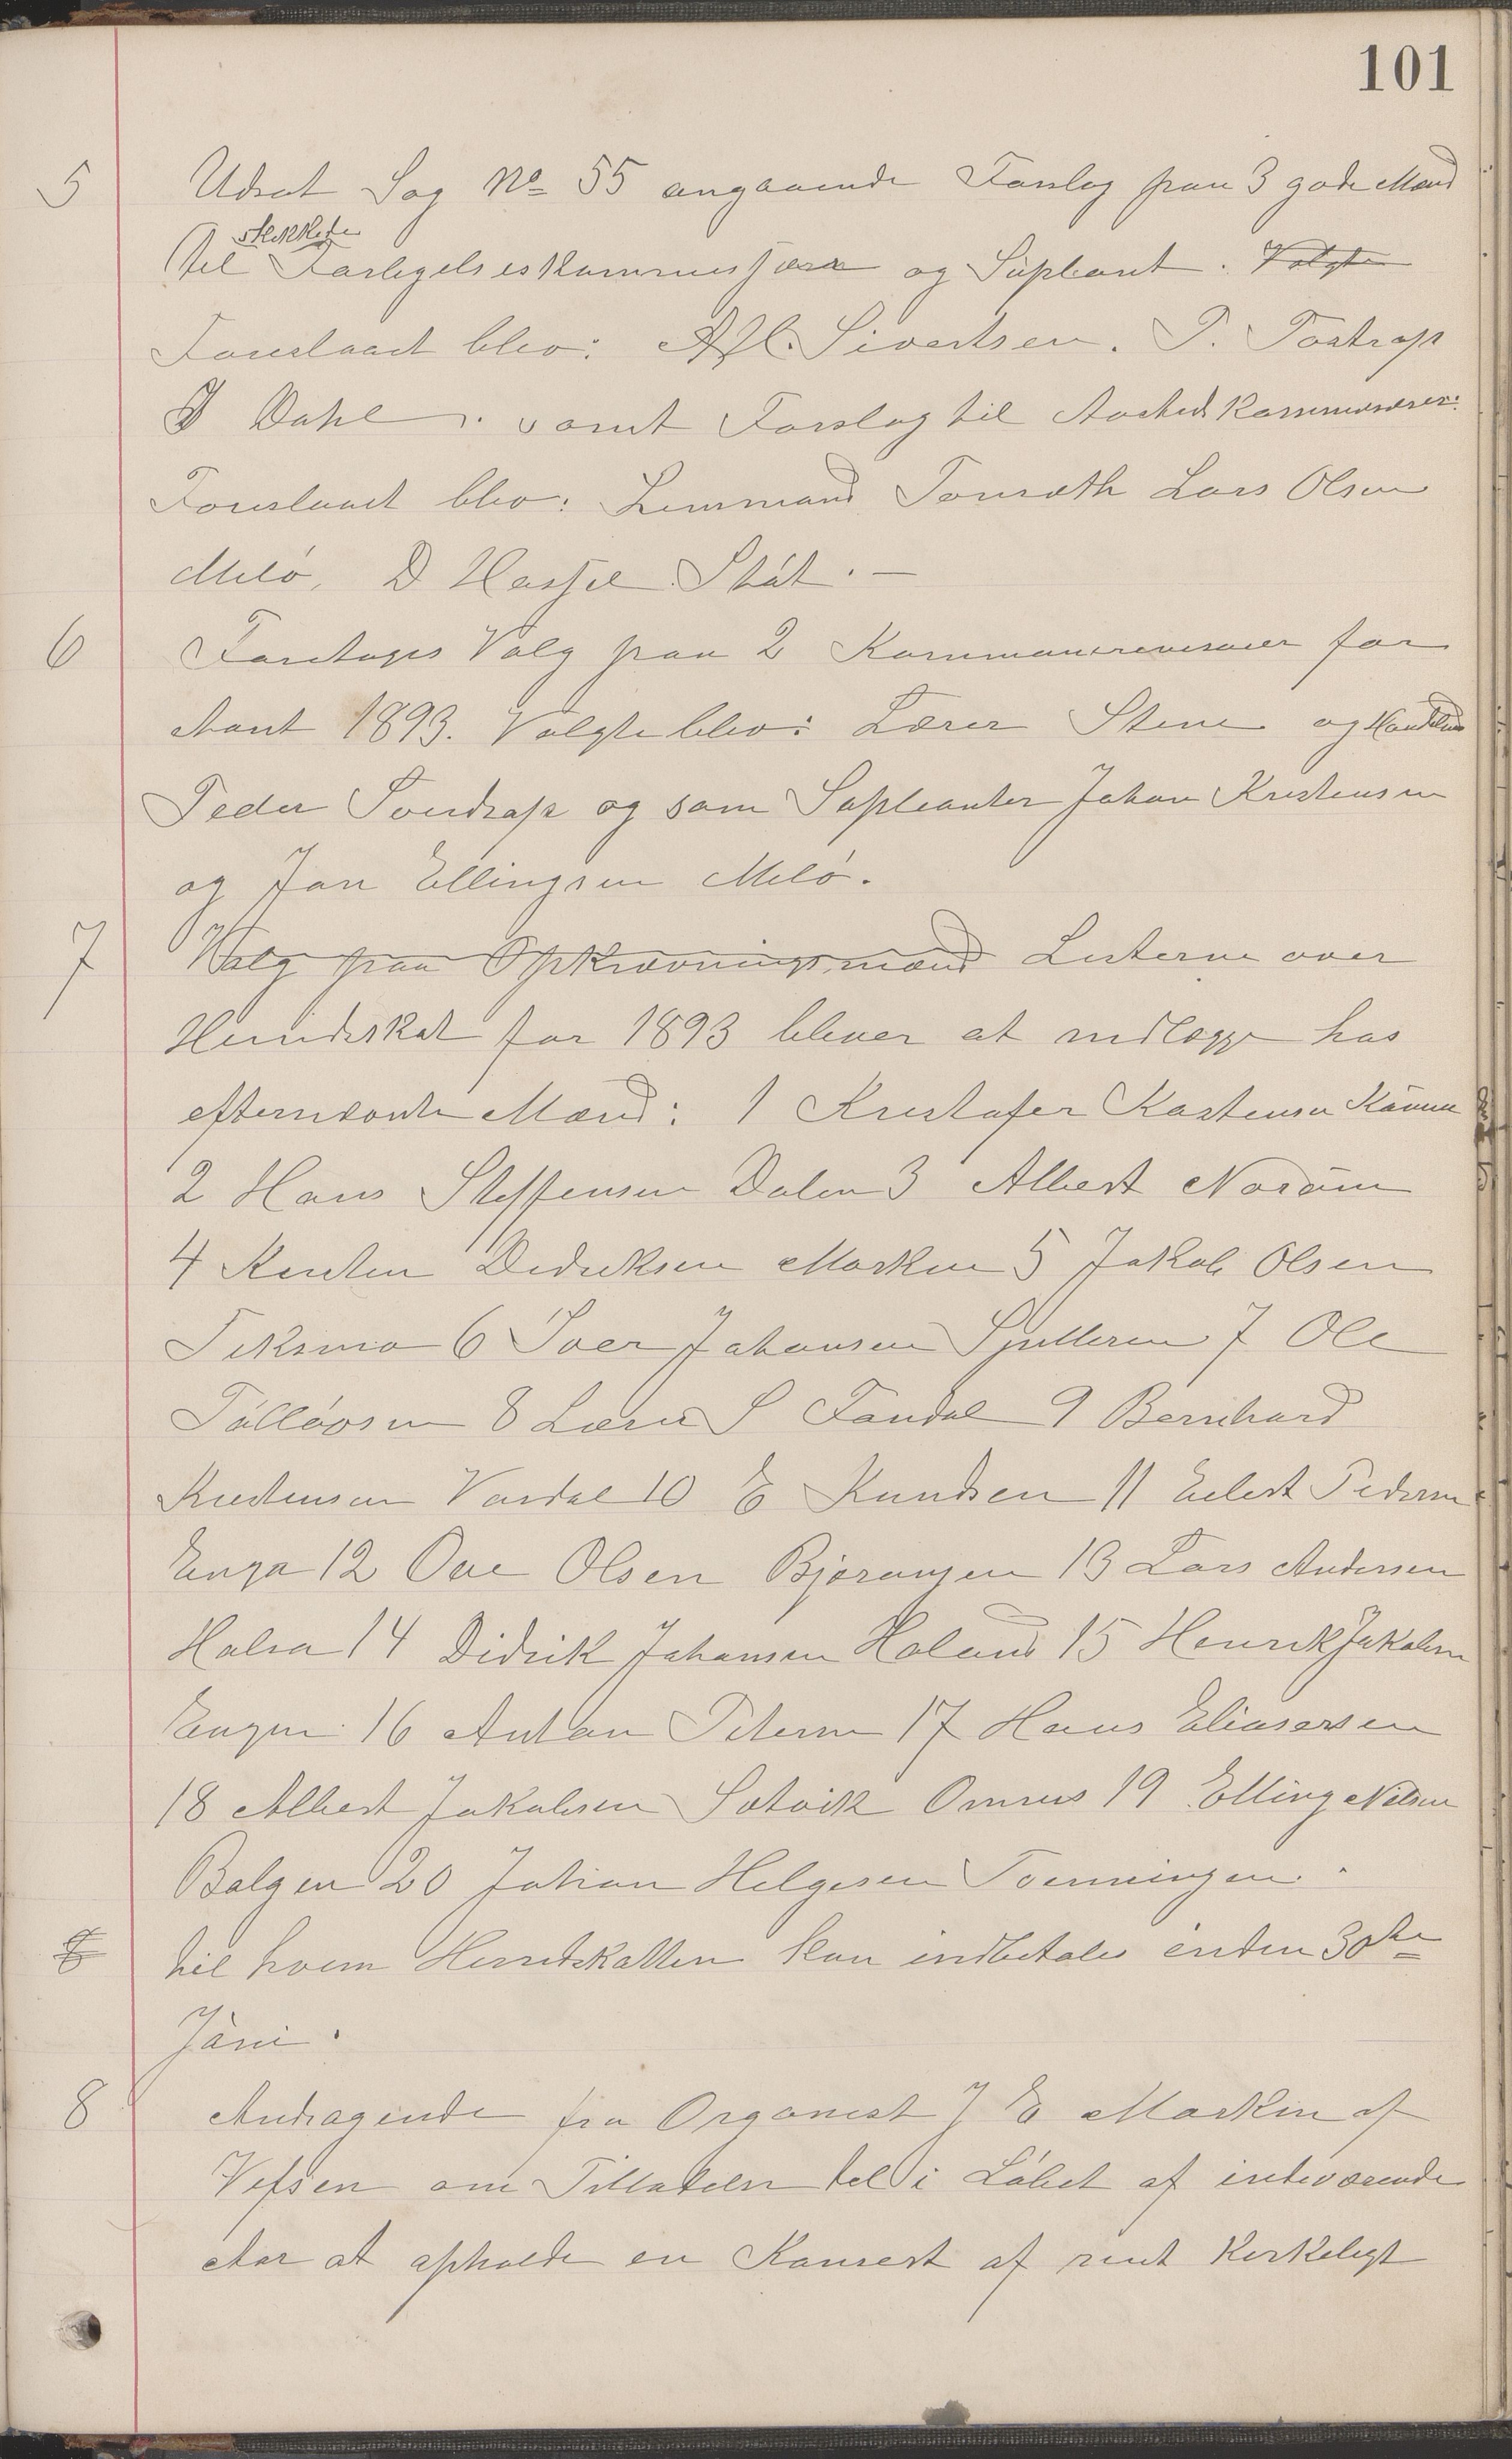 101
5 Udsat Sag No 55 angaaende Forslag paa 3 gode Mænd
stikkede
til Forligelseskommisjæra og Supleant. Valgte
Foreslaaet blev: A Sivertsen. P. Tostrap
J Dahl. samt Forslag til Aasteds kommisærer:
Foreslaaet blev: Lensmand Lars Olsen
Melø, D Hasfel Støt. —
6 Foretoges Valg paa 2 Kommunerevisorer for
Aaret 1893. Valgte blev: Lærer Stene og Handelsm
Peder Tverdrap og som Supleanter Johan Kristensen
og Jon Ellingsen Melø.
7 Valg paa Opkrævningsmænd Listerne over
Hundeskat for 1893 bliver at indlægge hos
efternævnte Mænd: 1 Kristofer Kastensen
2 Hans Steffensen Dalen 3 Albert Norum
4 Kristen Dedriksen Marken 5 Jakob Olsen
Teksmo 6 Iver Johansen 7 Ole
Tølløvsen 8 Lærer S Fondal 9 Bernhard
Kristensen Vasdal 10 E Knudsen 11 Eilert Pedersen
Enga 12 Ove Olsen Bjærangen 13 Lars Andersen
Halsa 14 Didrik Johansen Holand 15 Henrik Jakobsen
Engen 16 Anton Petersen 17 Hans Eliasersen
18 Albert Jakobsen Satvik Omnes 19 Elling Nilsen
Bolgen 20 Johan Helgesen Tverningen.
8 til hvem Hundskatten kan indbetales inden 30te
Juni.
8 Andragende fra Organist J E Markin af
Vefsen om Tilladelse til i Løbet af indeværende
Aar at afholde en Konsert af rent kirkeligt